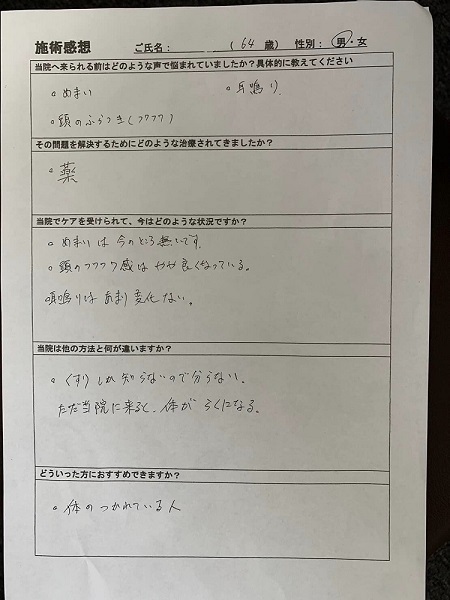 施術感想 ご氏名： （64 歳） 性別：男・女
当院へ来られる前はどのような声で悩まれていましたか？具体的に教えてください
。めまい 。耳鳴り
。頭のふらつき(フワフワ)
その問題を解決するためにどのような治療されてきましたか？
。薬
当院でケアを受けられて、今はどのような状況ですか？
。めまいは今のところ無いです。
。頭のフワフワ感はやや良くなっている。
耳鳴りはあまり変化ない。
当院は他の方法と何が違いますか？
。くすりしか知らないので分らない。
ただ当院に来ると、体がらくになる。
どういった方におすすめできますか？
。体のつかれている人